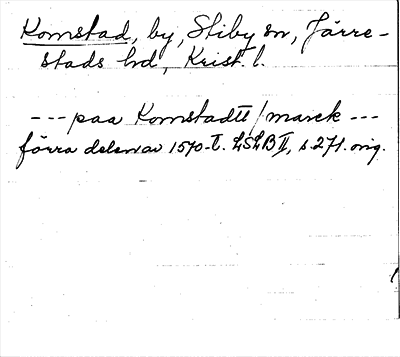 Komstad, by, Stiby sn, Järre-
stads hd, Krist. l.
--- paa Komstadtt / marck ---
förra delen av 1570-t. LSLB II, s. 271. orig.